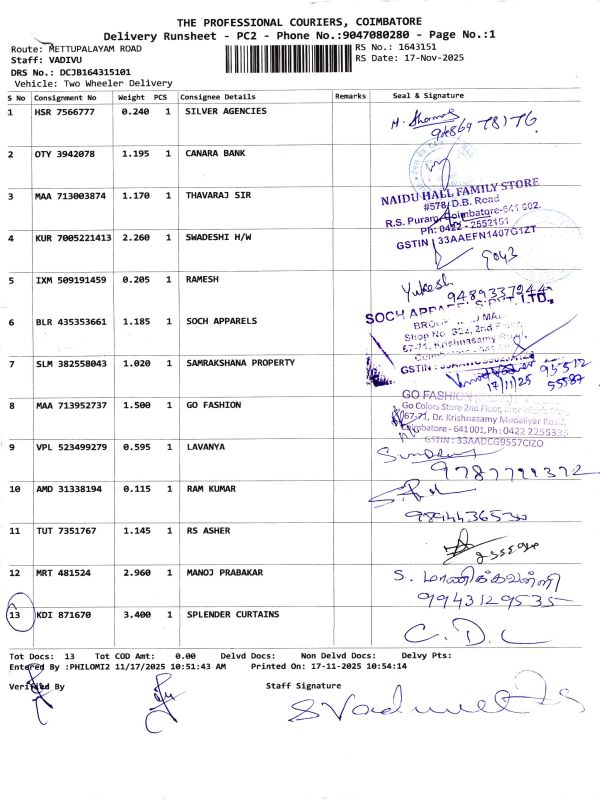 THE PROFESSIONAL COURIERS, COIMBATORE
Delivery Runsheet - PC2 - Phone No.:9047080280 - Page No.:1
Route: METTUPALAYAM ROAD
RS No.: 1643151
Staff: VADIVU
RS Date: 17-Nov-2025
DRS No.: DCJB164315101
Vehicle: Two Wheeler Delivery
S No Consignment No Weight PCS Consignee Details Remarks Seal & Signature
1 HSR 7566777 0.240 1 SILVER AGENCIES
2 OTY 3942078 1.195 1 CANARA BANK
3 MAA 713003874 1.170 1 THAVARAJ SIR
NAIDU HALL FAMILY STORE
#578, D.B. Road
R.S. Puram, Coimbatore-641 002.
Ph: 0422 - 2552151
GSTIN : 33AAEFN1407G1ZT
4 KUR 7005221413 2.260 1 SWADESHI H/W
9043
5 IXM 509191459 0.205 1 RAMESH
Yukesh
9489337244
6 BLR 435353661 1.185 1 SOCH APPARELS
SOCH
Shop No. 322, 2nd
67-71, Krishnasamy
7 SLM 382558043 1.020 1 SAMRAKSHANA PROPERTY
GSTIN :
17/11/25
93512
55587
8 MAA 713952737 1.500 1 GO FASHION
GO FASHION
Go Colors Store 2nd Floor,
67-71, Dr. Krishnasamy Mudaliyar Road,
Coimbatore - 641 001, Ph : 0422 2255335
GSTIN : 33AADCG9557C1ZO
9 VPL 523499279 0.595 1 LAVANYA
10 AMD 31338194 0.115 1 RAM KUMAR
9894436530
11 TUT 7351767 1.145 1 RS ASHER
12 MRT 481524 2.960 1 MANOJ PRABAKAR
9943129535
13 KDI 871670 3.400 1 SPLENDER CURTAINS
C. D. C
Tot Docs: 13 Tot COD Amt: 0.00 Delvd Docs: Non Delvd Docs: Delvy Pts:
Entered By :PHILOMI2 11/17/2025 10:51:43 AM Printed On: 17-11-2025 10:54:14
Verified By Staff Signature